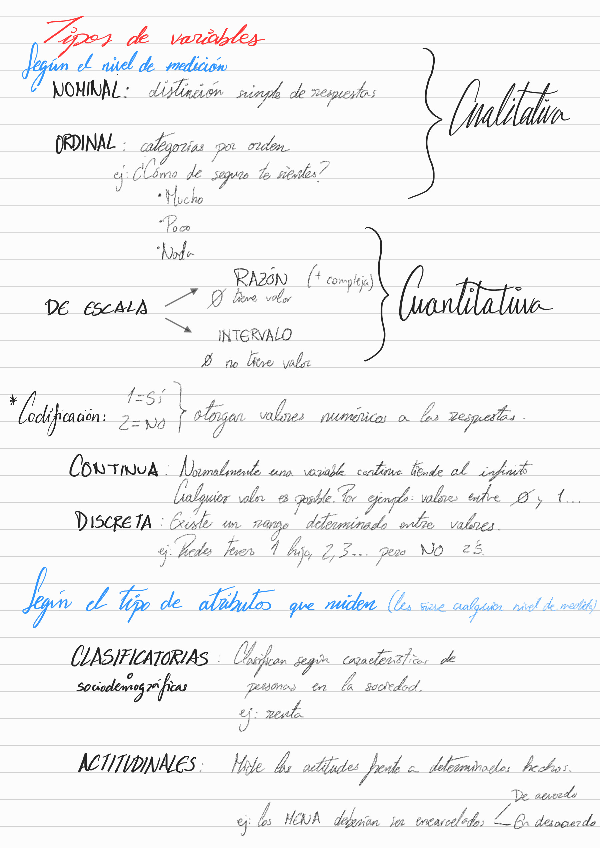 Tipos de variables
Según el nivel de medición
NOMINAL: distinción simple de respuestas
Cualitativa
ORDINAL: categorías por orden
ej: ¿Cómo de seguro te sientes?
• Mucho
• Poco
• Nada
RAZÓN (+ compleja)
Ø tiene valor
DE ESCALA
Cuantitativa
INTERVALO
Ø no tiene valor
* Codificación: 1=Sí
2=NO
otorgar valores numéricos a las respuestas.
CONTINUA: Normalmente una variable continua tiende al infinito
Cualquier valor es posible. Por ejemplo: valores entre Ø y 1...
DISCRETA: Existe un rango determinado entre valores.
ej: Puedes tener 1 hijo, 2, 3... pero NO 2'3.
Según el tipo de atributos que miden (les sirve cualquier nivel de medida)
CLASIFICATORIAS: Clasifican según características de
o
sociodemográficas personas en la sociedad.
ej: renta
ACTITUDINALES: Mide las actitudes frente a determinados hechos.
De acuerdo
ej: los MENA deberían ser encarcelados
En desacuerdo